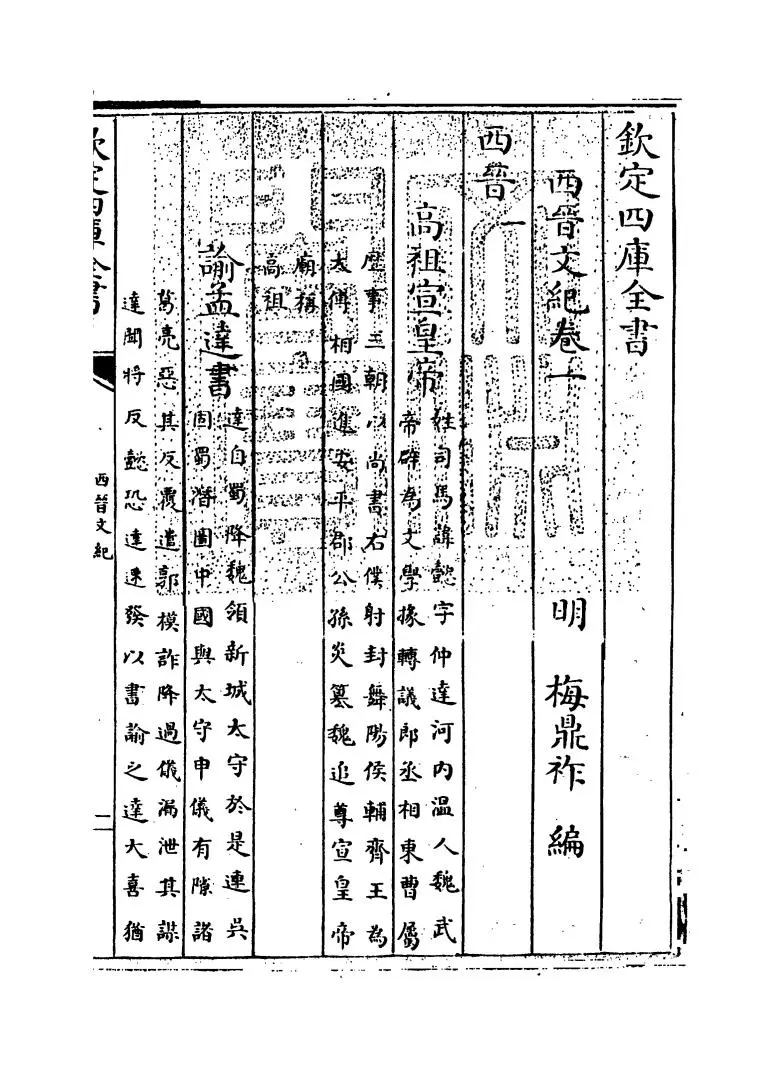 欽定四庫全書
西晉文紀卷一
明 梅鼎祚 編
西晉一
高祖宣皇帝
姓司馬諱懿字仲達河内温人魏武
帝辟為文學掾轉議郎丞相東曹屬
歴事三朝以尚書右僕射封舞陽侯輔齊王為
太傅相國進安平郡公孫炎簒魏追尊宣皇帝
廟稱
高祖
諭孟達書
達自蜀降魏領新城太守於是連吳
固蜀潛圖中國與太守申儀有隙諸
葛亮惡其反覆遣郭模詐降過儀漏泄其謀
達聞將反懿恐達速發以書諭之達大喜猶
欽定四庫全書
西晉文紀